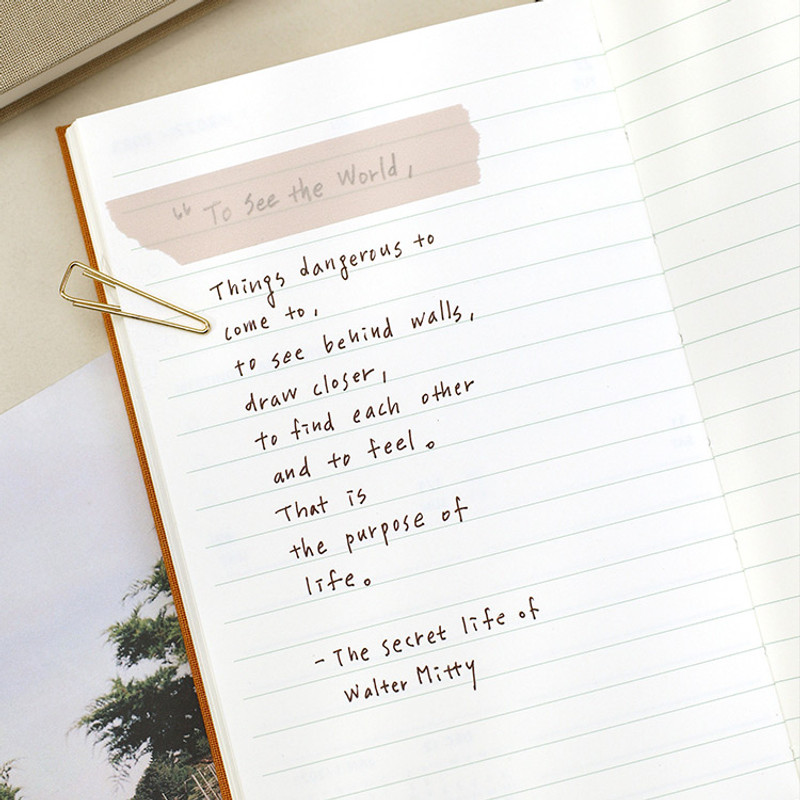 “ To see the World,
Things dangerous to
come to,
to see behind walls,
draw closer,
to find each other
and to feel。
That is
the purpose of
life。
- The secret life of
Walter Mitty